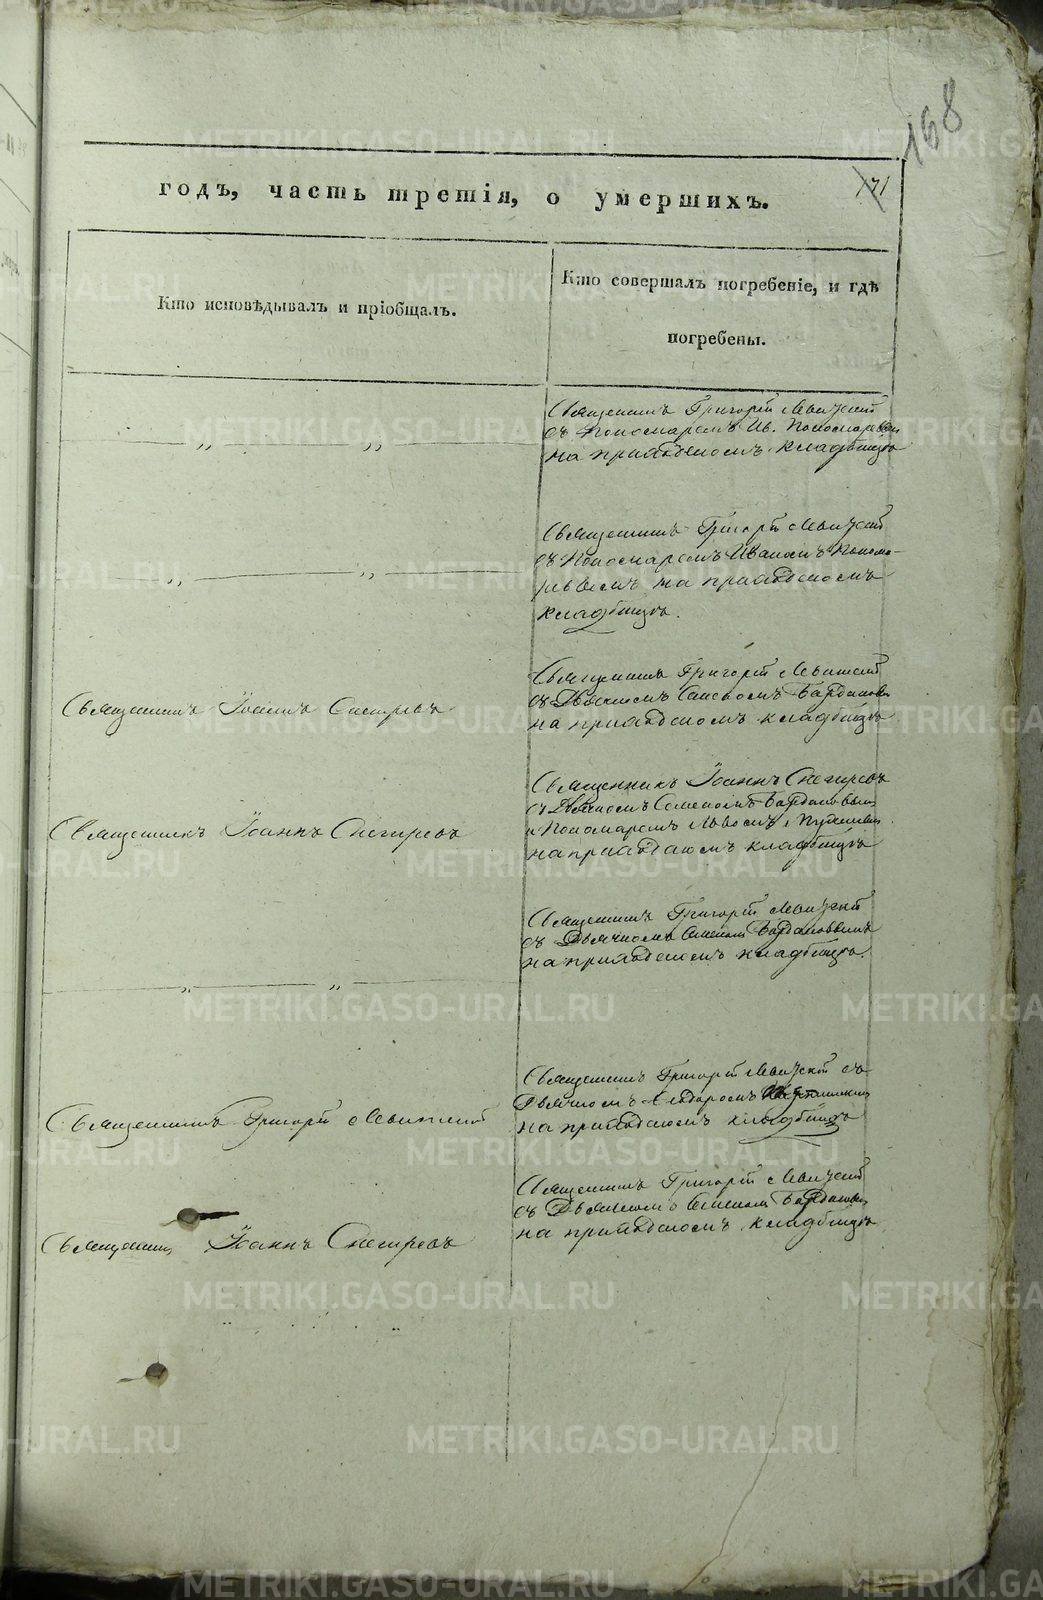 168
171
годъ, часть третія, о умершихъ.
Кто исповѣдывалъ и пріобщалъ.
Кто совершалъ погребеніе, и гдѣ
погребены.
„ „
Священникъ Григорій Левитскій
съ Пономаремъ Ив. Пономаревым
на приходскомъ кладбищѣ
„ „
Священникъ Григорій Левитскій
съ Пономаремъ Иваномъ Понома-
ревымъ на приходскомъ
кладбищѣ.
Священникъ Іоаннъ Снегиревъ
Священникъ Григорій Левитскій
съ Дьячкомъ
на приходскомъ кладбищѣ
Священникъ Іоаннъ Снегиревъ
Священникъ Іоаннъ Снегиревъ
съ Дьячкомъ Семеномъ
и Пономаремъ Львомъ
на приходскомъ кладбищѣ
„ „
Священникъ Григорій Левитскій
съ Дьячкомъ Семеномъ
на приходскомъ кладбищѣ.
Священникъ Григорій Левитскій
Священникъ Григорій Левитскій съ
Дьячкомъ
на приходскомъ кладбищѣ
Священникъ Іоаннъ Снегиревъ
Священникъ Григорій Левитскій
съ Дьячкомъ Семеномъ
на приходскомъ кладбищѣ
METRIKI.GASO-URAL.RU